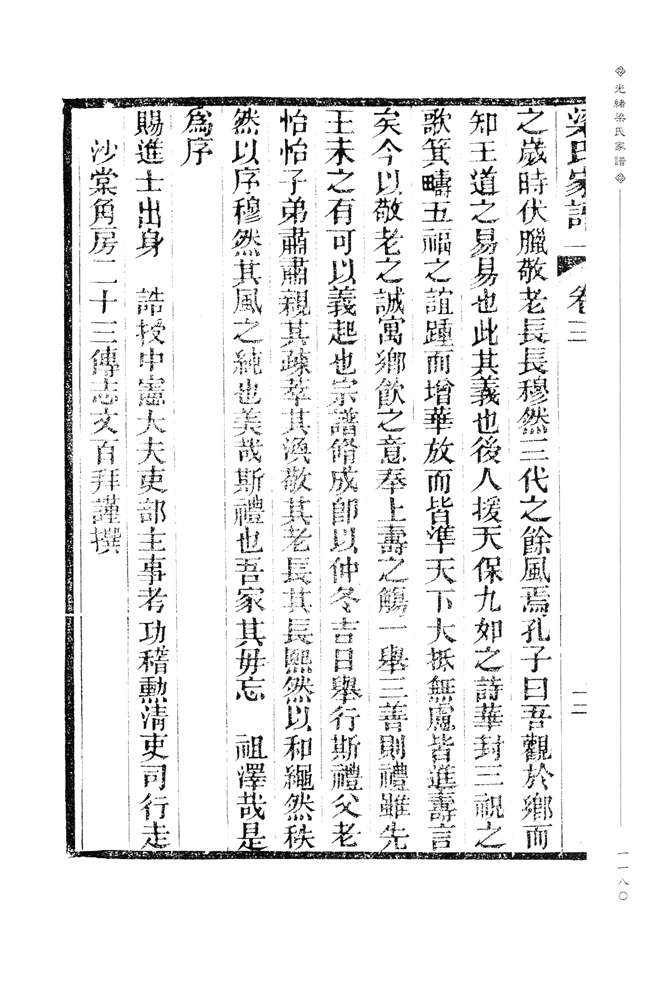 光緒梁氏家譜
一一八〇
梁氏家譜 卷三 二
之歲時伏臘敬老長長穆然三代之餘風焉孔子曰吾觀於鄉而
知王道之易易也此其義也後人援天保九如之詩華封三祝之
歌箕疇五福之誼踵而增華放而皆準天下大抵無處皆進壽言
矣今以敬老之誠寓鄉飲之意奉上壽之觴一舉三善則禮雖先
王未之有可以義起也宗譜脩成卽以仲冬吉日舉行斯禮父老
怡怡子弟肅肅親其疎萃其渙敬其老長其長熙然以和繩然秩
然以序穆然其風之純也美哉斯禮也吾家其毋忘 祖澤哉是
爲序
賜進士出身 誥授中憲大夫吏部主事考功稽勳清吏司行走
沙棠角房二十三傳志文百拜謹撰